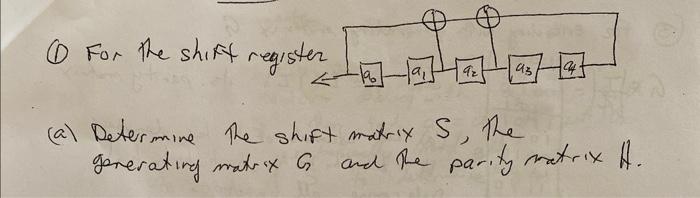 ① For the shift register
a₀ a₁ a₂ a₃ a₄
(a) Determine the shift matrix S, the
generating matrix G and the parity matrix H.